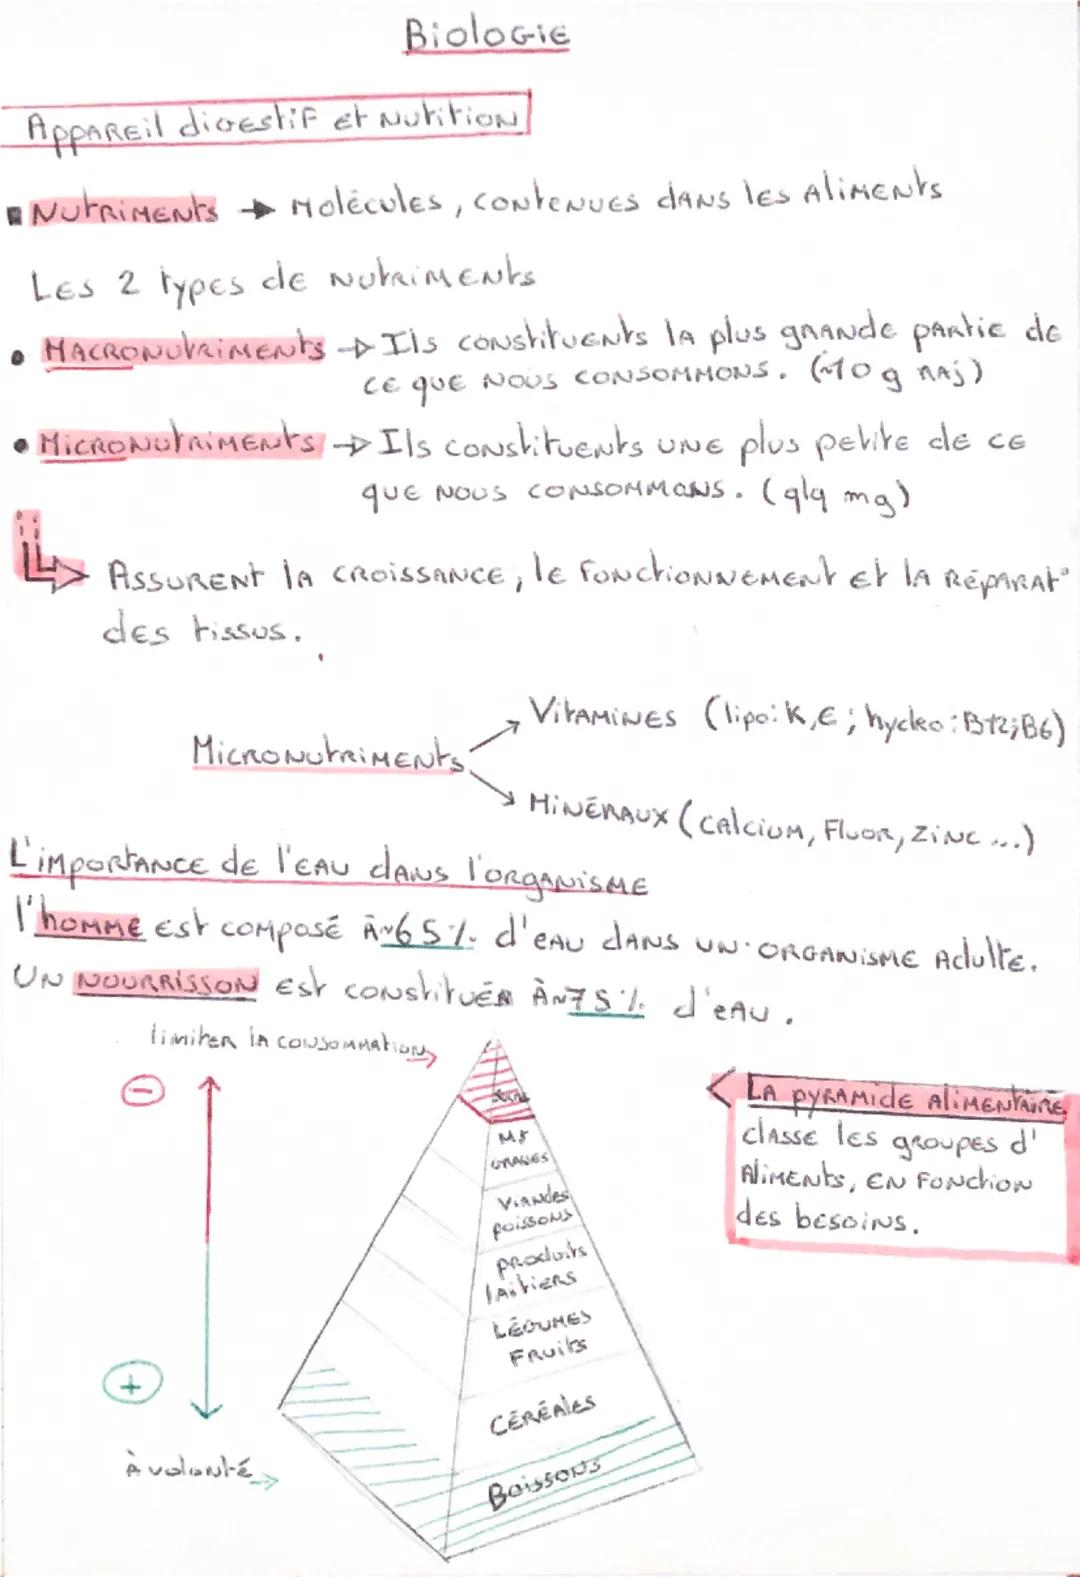 Biologie
Appareil digestif et Nutition
Nutriments → Molécules, contenues dans les Aliments
Les 2 types de nutriments
• Macronutriments → Ils constituents la plus grande partie de
ce que nous consommons. (~10 g
• Micronutriments → Ils constituents une plus petite de ce
que nous consommons. (qlq mg)
Assurent la croissance, le fonctionnement et la réparat°
des tissus.
Vitamines (lipo: K,E; hydro: B12;B6)
Micronutriments
Minéraux (calcium, Fluor, Zinc ...)
L'importance de l'eau dans l'organisme
l'homme est composé à ~65% d'eau dans un organisme adulte.
Un nourrisson est constitué à ~75% d'eau.
limiter la consommation
La pyramide alimentaire
classe les groupes d'
Aliments, en fonction
des besoins.
-
Viandes
poissons
produits
laitiers
Légumes
Fruits
+
Céréales
à volonté
Boissons